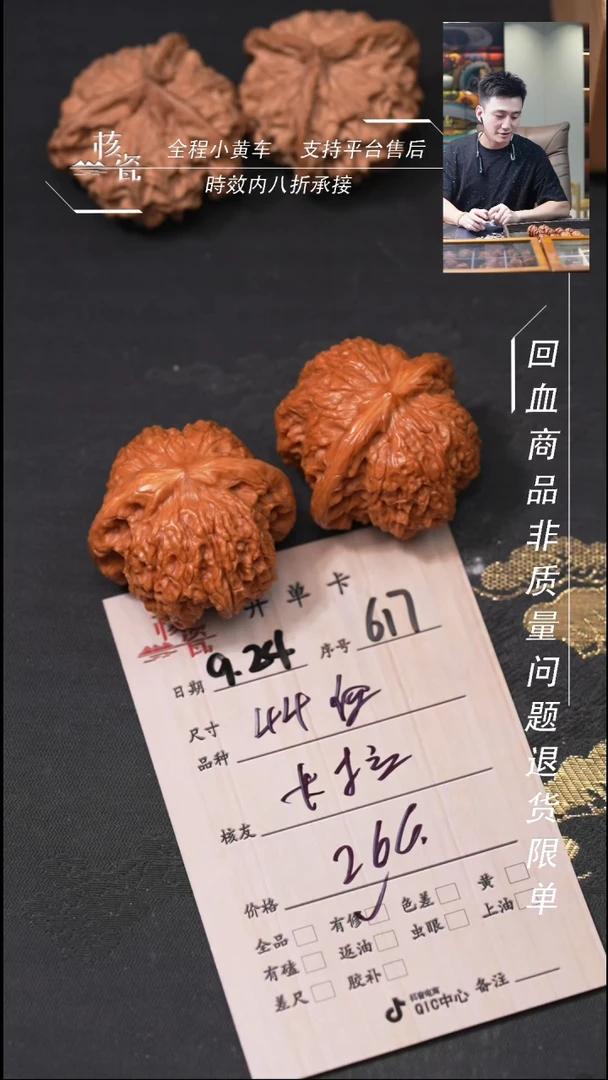 核瓷
全程小黄车 支持平台售后
時效内八折承接
回血商品非质量问题退货限单
核瓷
开单卡
日期 9.24 序号 617
尺寸 44
品种
核友
266.
价格
全品 有修 色差 黄
有磕 返油 虫眼 上油
差尺 胶补
抖音电商
QIC中心 备注